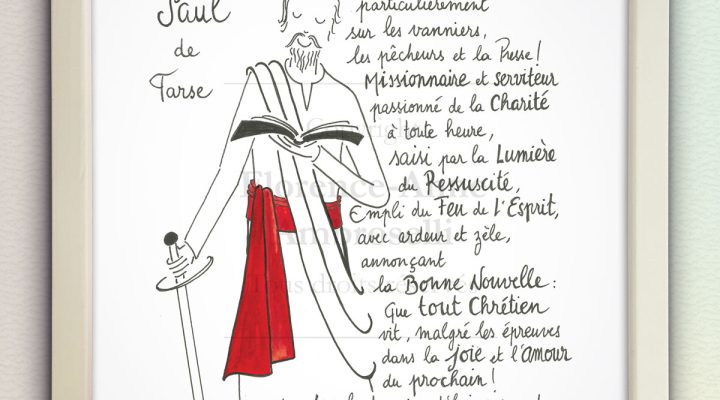 Paul
de
Tarse
particulièrement
sur les vanniers,
les pêcheurs et la Presse!
Missionnaire et serviteur
passionné de la Charité
à toute heure,
saisi par la Lumière
du Ressuscité,
Empli du Feu de l'Esprit,
avec ardeur et zèle,
annonçant
la Bonne Nouvelle :
Que tout Chrétien
vit, malgré les épreuves
dans la joie et l'amour
du prochain !
Copyright
Florence-Anne
Amboselli
Tous droits